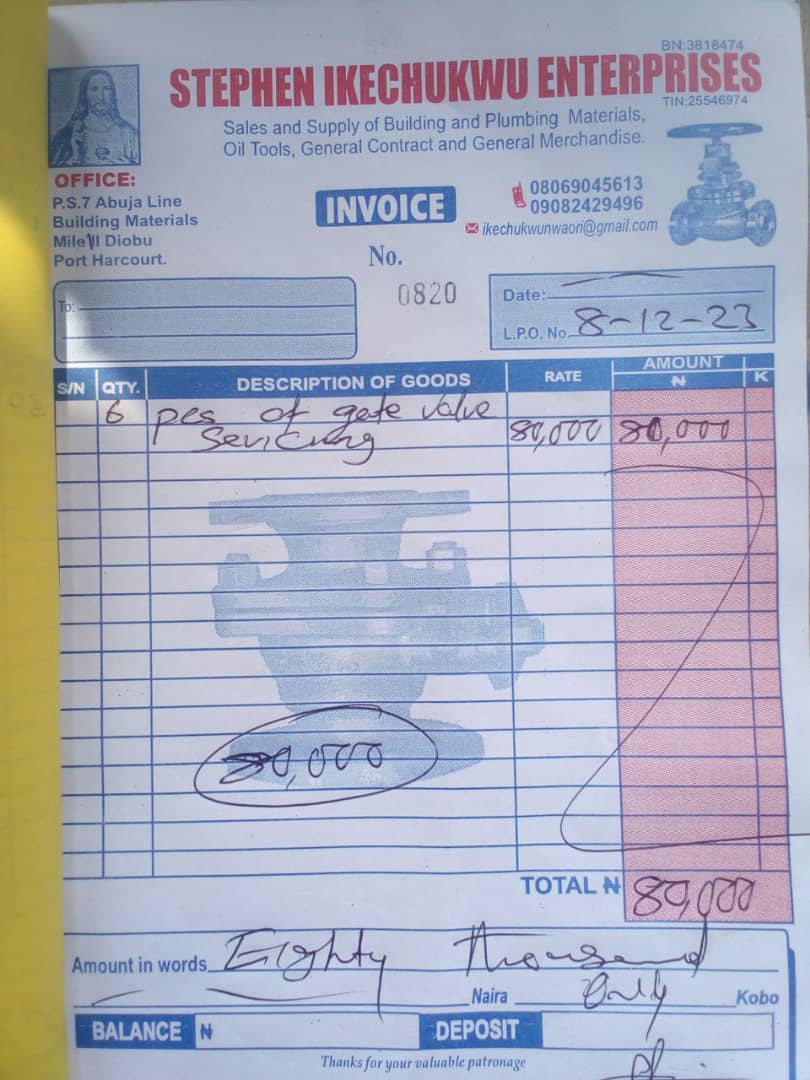 BN:3818474
STEPHEN IKECHUKWU ENTERPRISES
TIN:25546974
Sales and Supply of Building and Plumbing Materials,
Oil Tools, General Contract and General Merchandise.
OFFICE:
P.S.7 Abuja Line
Building Materials
Mile III Diobu
Port Harcourt.
INVOICE
08069045613
09082429496
ikechukwunwaori@gmail.com
No.
0820
To:
Date:
L.P.O. No. 8-12-23
S/N QTY. DESCRIPTION OF GOODS RATE AMOUNT
₦ K
6 pcs of gate valve
Servicing 80,000 80,000
80,000
TOTAL ₦ 80,000
Amount in words Eighty thousand
Naira Only Kobo
BALANCE ₦ DEPOSIT
Thanks for your valuable patronage